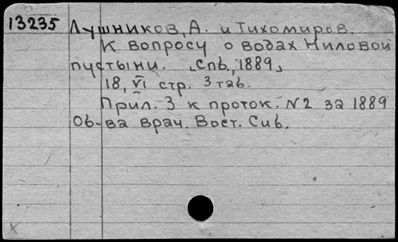 13235 Лушников, А. и Тихомиров.
К вопросу о водах Ниловой
пустыни. [Спб., 1889]
18, VI стр. 3 таб.
Прил. 3 к проток. N2 за 1889
Об-ва врач. Вост. Сиб.